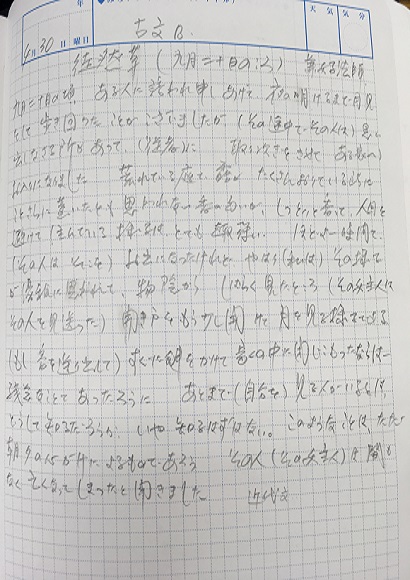 年 天気 気分
4月30日 曜日
古文B
徒然草(九月二十日のころ) 兼好法師
九月二十日の頃、ある人に誘われ申しあげて、夜の明けるまで月見
をして歩き回ったことがございましたが(その途中で、その人は)思い
出しなさる所があって、(従者に) 取り次ぎをさせて、ある家の
お入りになりました 荒れている庭で露が たくさんおりているところに
ことさらに焚いたとも思われない香の匂いが、しっとりと香って、人目を
避けて住んでいる 様子は、とても趣深い。 ほどよい時間で、
(その人は お出になったけれど やはり(私は) その様子
が優雅に思われて、物陰から しばらく見たところ (その女主人は
その人を見送った)開き戸をもう少し開けて月を見る様子である
(もし客を送り出して)すぐに鍵をかけて家の中に閉じこもったならば
残念なことであったろうに あとまで(自分を)見る人がいるとは、
どうして知るだろうか、いや知るはずはない。 このようなことは、ただ
朝夕の心がけによるものであろう その人(その女主人)は 間も
なく亡くなってしまったと聞きました
近代文